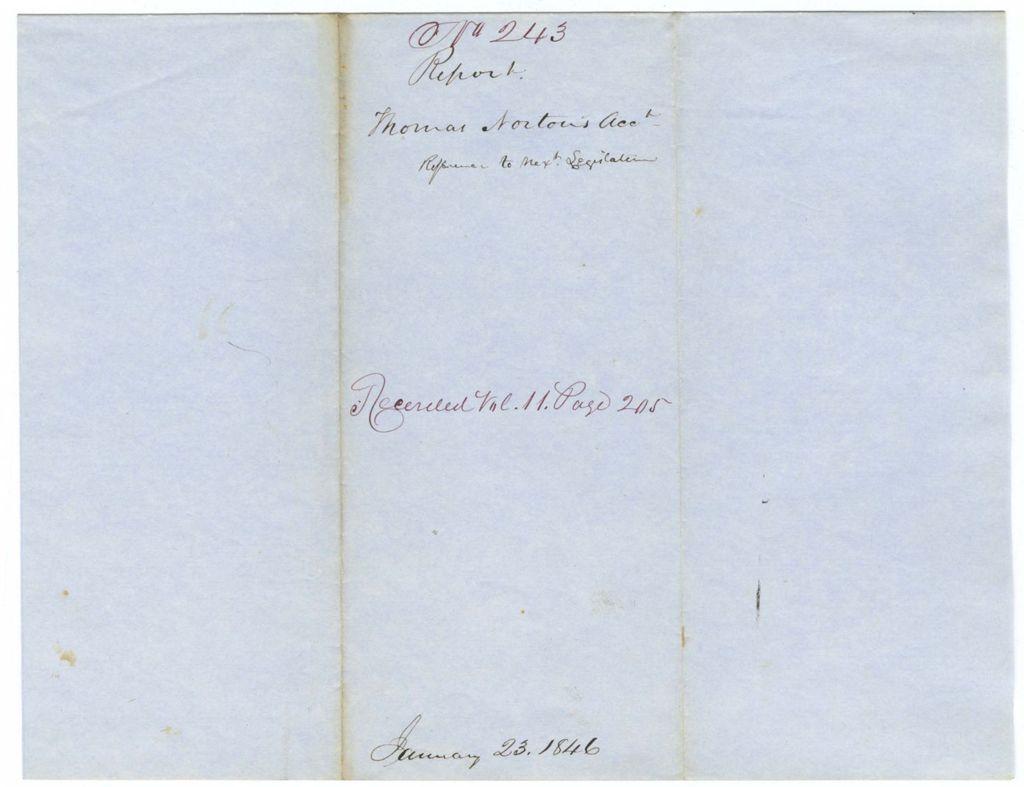 No 243
Report.
Thomas Norton's Acct
Reference to next Legislature
Recorded Vol. 11. Page 205
January 23. 1846